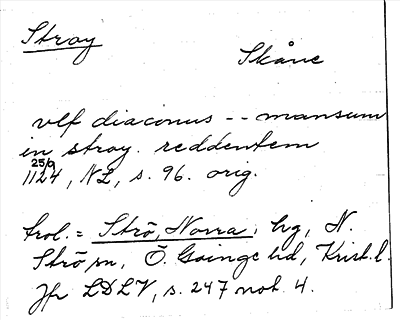 Stroy
Skåne
vlf diaconus -- mansum
in stroy. reddentem
25/9
1124, NL, s. 96. orig.
trol. = Strö, Norra, by, N.
Strö sn, Ö. Göinge hd, Krist. l.
Jfr LDLV, s. 247 not 4.